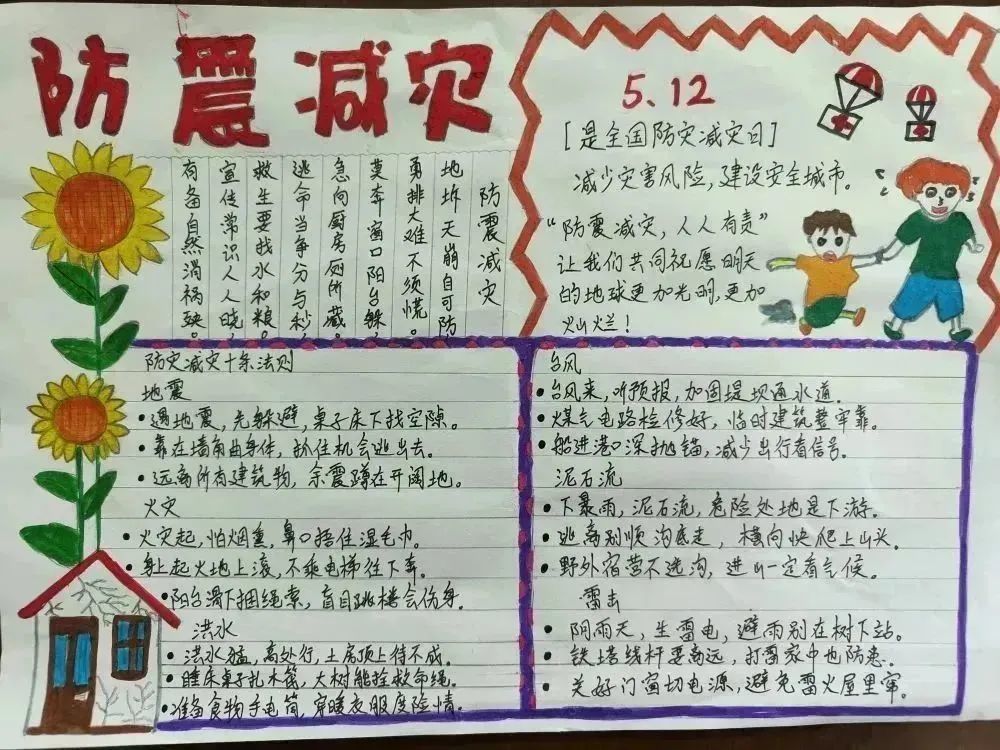 防震减灾
防震减灾
地坼天崩自可防,
勇排大难不须慌。
莫奔窗口阳台躲,
急向厨房厕所藏。
逃命当争分与秒,
救生要找水和粮。
宣传常识人人晓,
有备自然消祸殃。
5.12
[是全国防灾减灾日]
减少灾害风险,建设安全城市。
“防震减灾,人人有责”
让我们共同祝愿明天
的地球更加光明,更加
灿烂!
防灾减灾十条法则
地震
·遇地震,先躲避,桌子床下找空隙。
·靠在墙角曲身体,抓住机会逃出去。
·远离所有建筑物,余震蹲在开阔地。
火灾
·火灾起,怕烟熏,鼻口捂住湿毛巾。
·身上起火地上滚,不乘电梯往下奔。
·阳台滑下捆绳索,盲目跳楼会伤身。
洪水
·洪水猛,高处行,土房顶上待不成。
·睡床桌子扎木筏,大树能拴救命绳。
·准备食物手电筒,穿暖衣服度险情。
台风
·台风来,听预报,加固堤坝通水道。
·煤气电路检修好,临时建筑整牢靠。
·船进港口深抛锚,减少出行看信号。
泥石流
·下暴雨,泥石流,危险处地是下游。
·逃离别顺沟底走,横向快爬上山头。
·野外宿营不选沟,进山一定看气候。
雷击
·阴雨天,生雷电,避雨别在树下站。
·铁塔线杆要离远,打雷家中也防患。
·关好门窗切电源,避免雷火屋里窜。